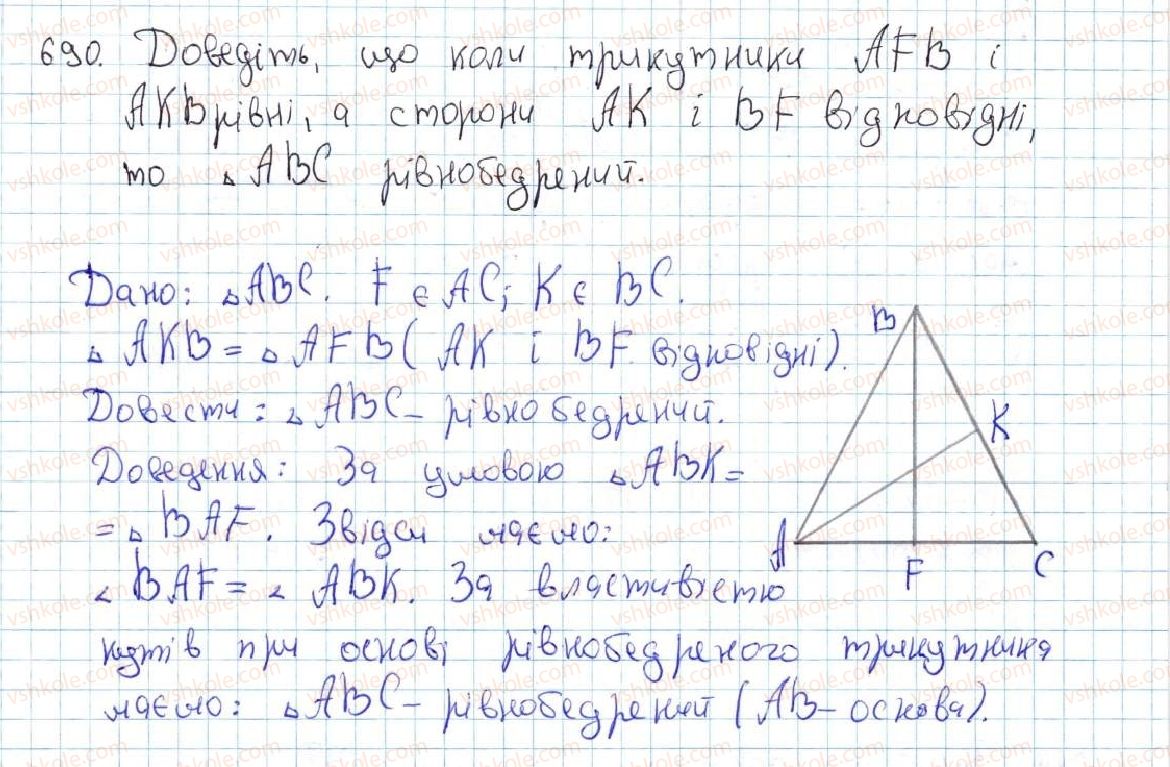 690. Доведіть, що коли трикутники AFB і
AKB рівні, а сторони AK і BF відповідні,
то △ABC рівнобедрений.
Дано: △ABC. F є AC; K є BC.
△AKB = △AFB (AK і BF відповідні).
Довести: △ABC – рівнобедрений.
Доведення: За умовою △ABK =
= △BAF. Звідси маємо:
∠BAF = ∠ABK. За властивістю
кутів при основі рівнобедреного трикутника
маємо: △ABC – рівнобедрений (AB – основа).
B
K
A
F
C
vshkole.com